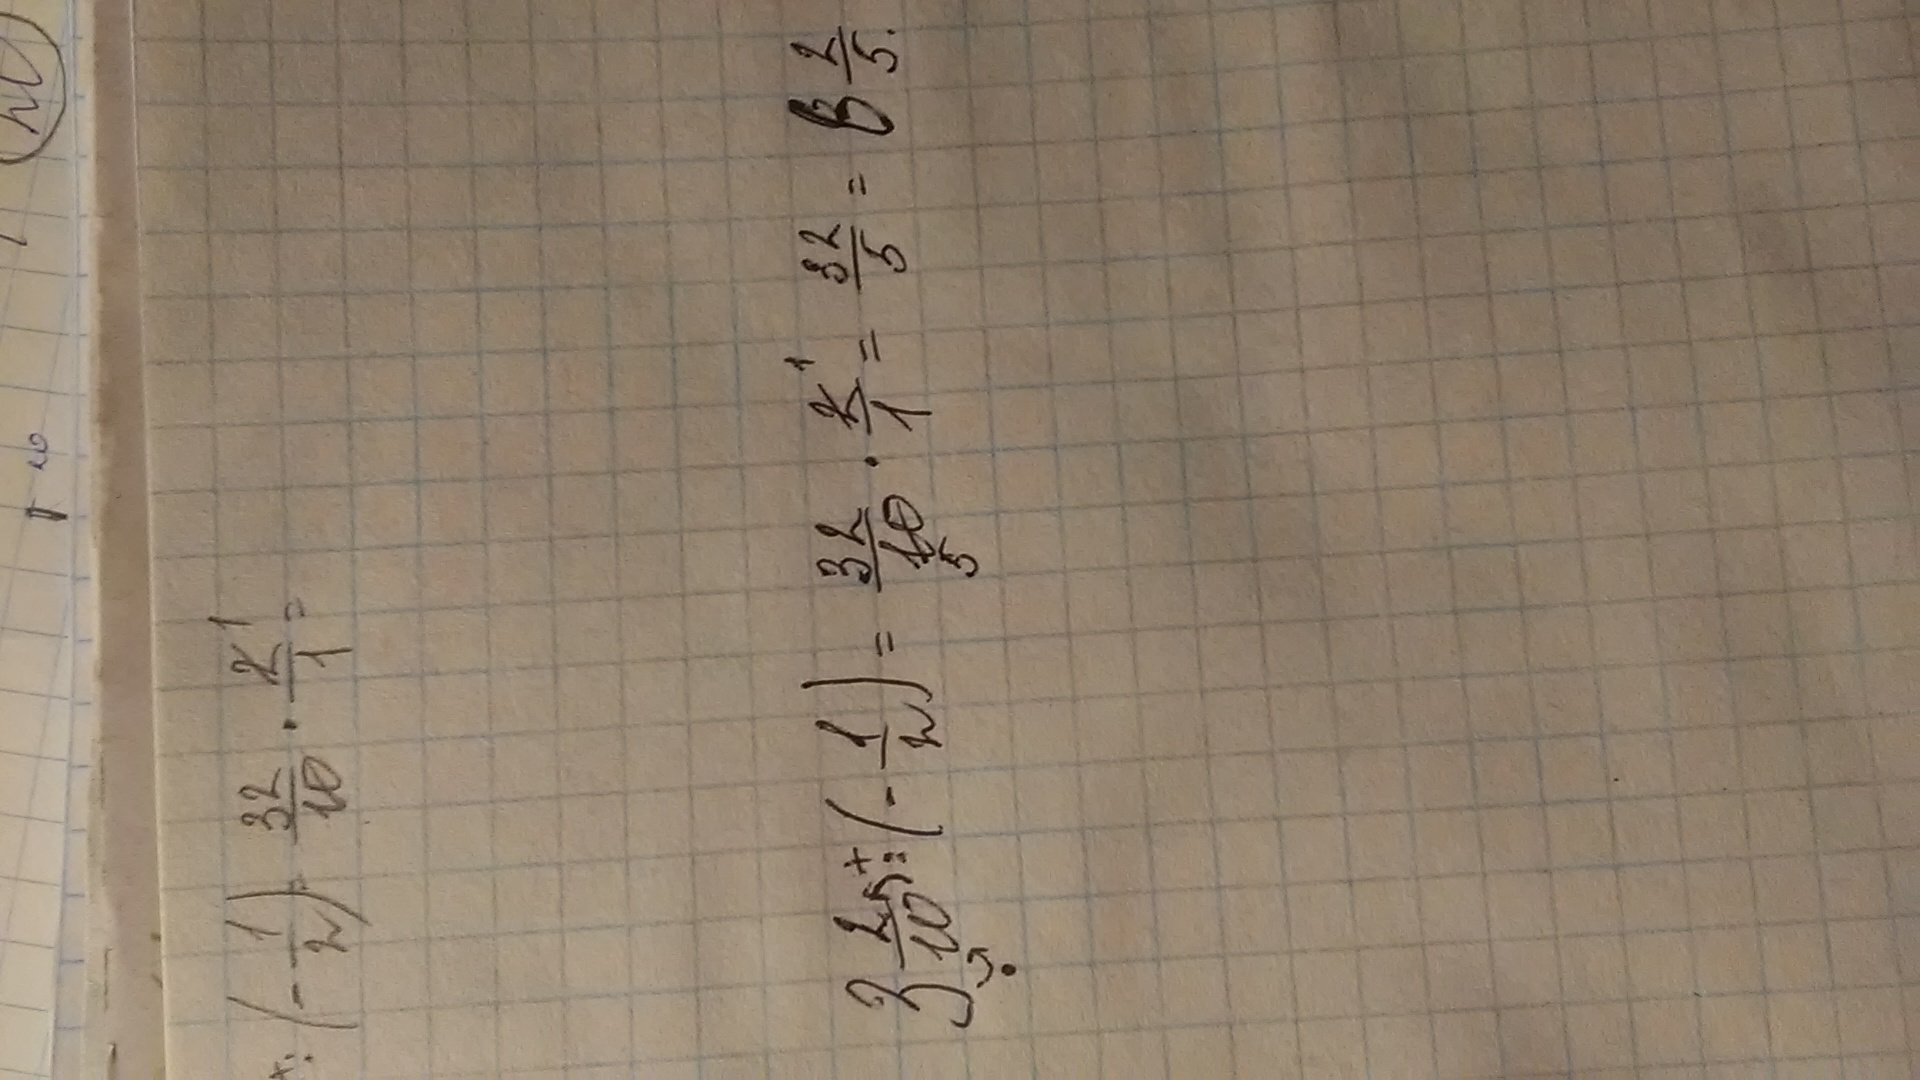 : (- 1/2) 32/10 · 2/1 1 =
3 2/10 : (- 1/2) = 32/10 5 · 2/1 1 = 32/5 = 6 2/5.